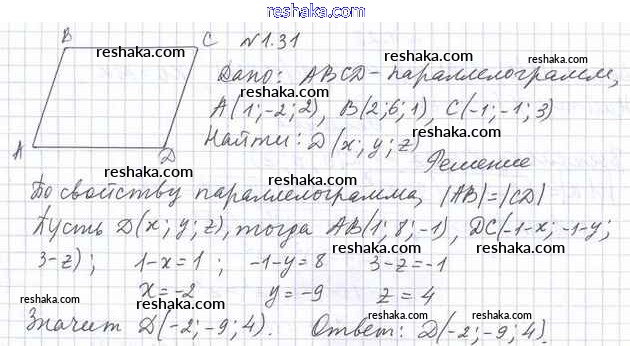 reshaka.com
B C №1.31
reshaka.com reshaka.com
Дано: ABCD - параллелограмм,
reshaka.com
A(1;-2;2), B(2;6;1), C(-1;-1;3)
reshaka.com
Найти: D(x; y; z)
A D
reshaka.com
Решение
reshaka.com
По свойству параллелограмма, |AB|=|CD|
reshaka.com
Пусть D(x; y; z), тогда AB(1; 8; -1), DC(-1-x; -1-y;
reshaka.com reshaka.com
3-z); 1-x=1; -1-y=8 3-z=-1
reshaka.com
x=-2 y=-9 z=4
reshaka.com reshaka.com
Значит D(-2;-9;4). Ответ: D(-2;-9;4).
reshaka.com reshaka.com